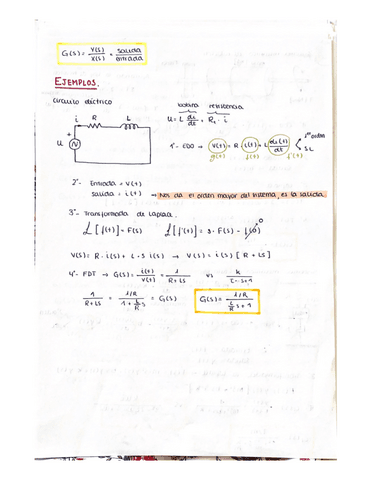 G(s) = V(s)/X(s) = salida/entrada
EJEMPLOS.
circuito eléctrico
bobina resistencia
U = L di/dt + R · i
i R L
U
1º- EDO → V(t) = R i(t) + L di(t)/dt
1er orden
SL
g(t) f(t) f'(t)
2º- Entrada = V(t)
salida = i(t) → Nos da el orden mayor del sistema, es la salida
3º- Transformada de Laplace.
L[f(t)] = F(s) L[f'(t)] = s · F(s) - f(0) 0
V(s) = R · i(s) + L · s i(s) → V(s) = i(s) [R + LS]
4º- FDT → G(s) = i(t)/V(t) = 1/(R + LS) vs k/(τ · s + 1)
1/(R + LS) = (1/R)/(1 + L/R s) = G(s) G(s) = (1/R)/(L/R s + 1)